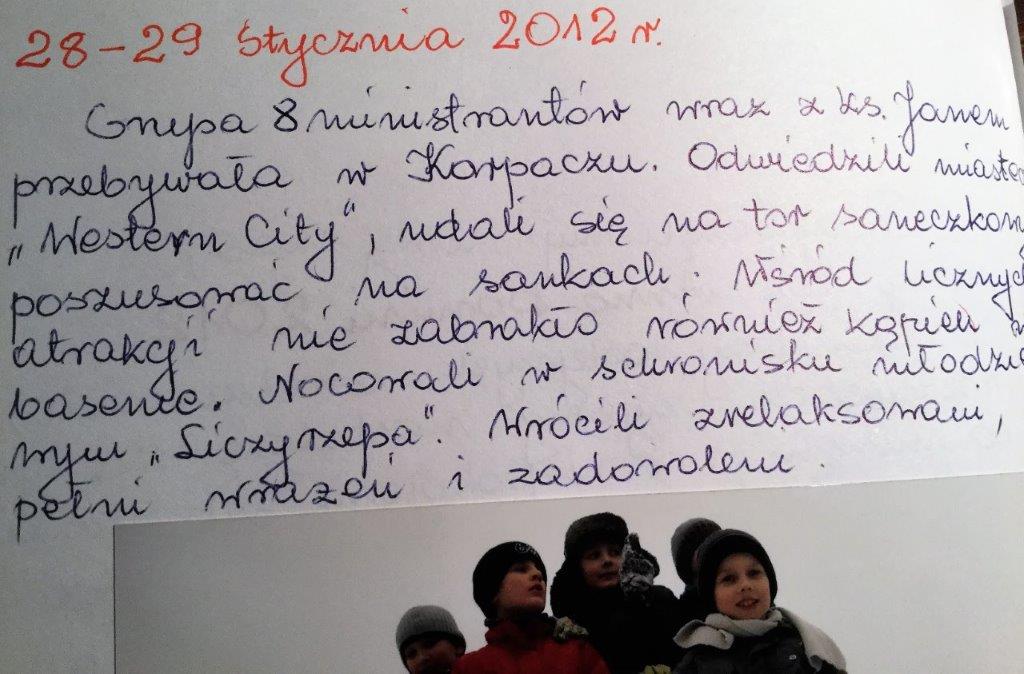 28-29 Stycznia 2012 r.
Grupa 8 ministrantów wraz z ks. Janem
przebywała w Karpaczu. Odwiedzili
„Western City", udali się na tor
poszusować na sankach. Wśród
atrakcji nie zabrakło również kąpieli
basenie. Nocowali w schronisku
„Liczyrzepa". Wrócili zrelaksowani,
pełni wrażeń i zadowoleni.